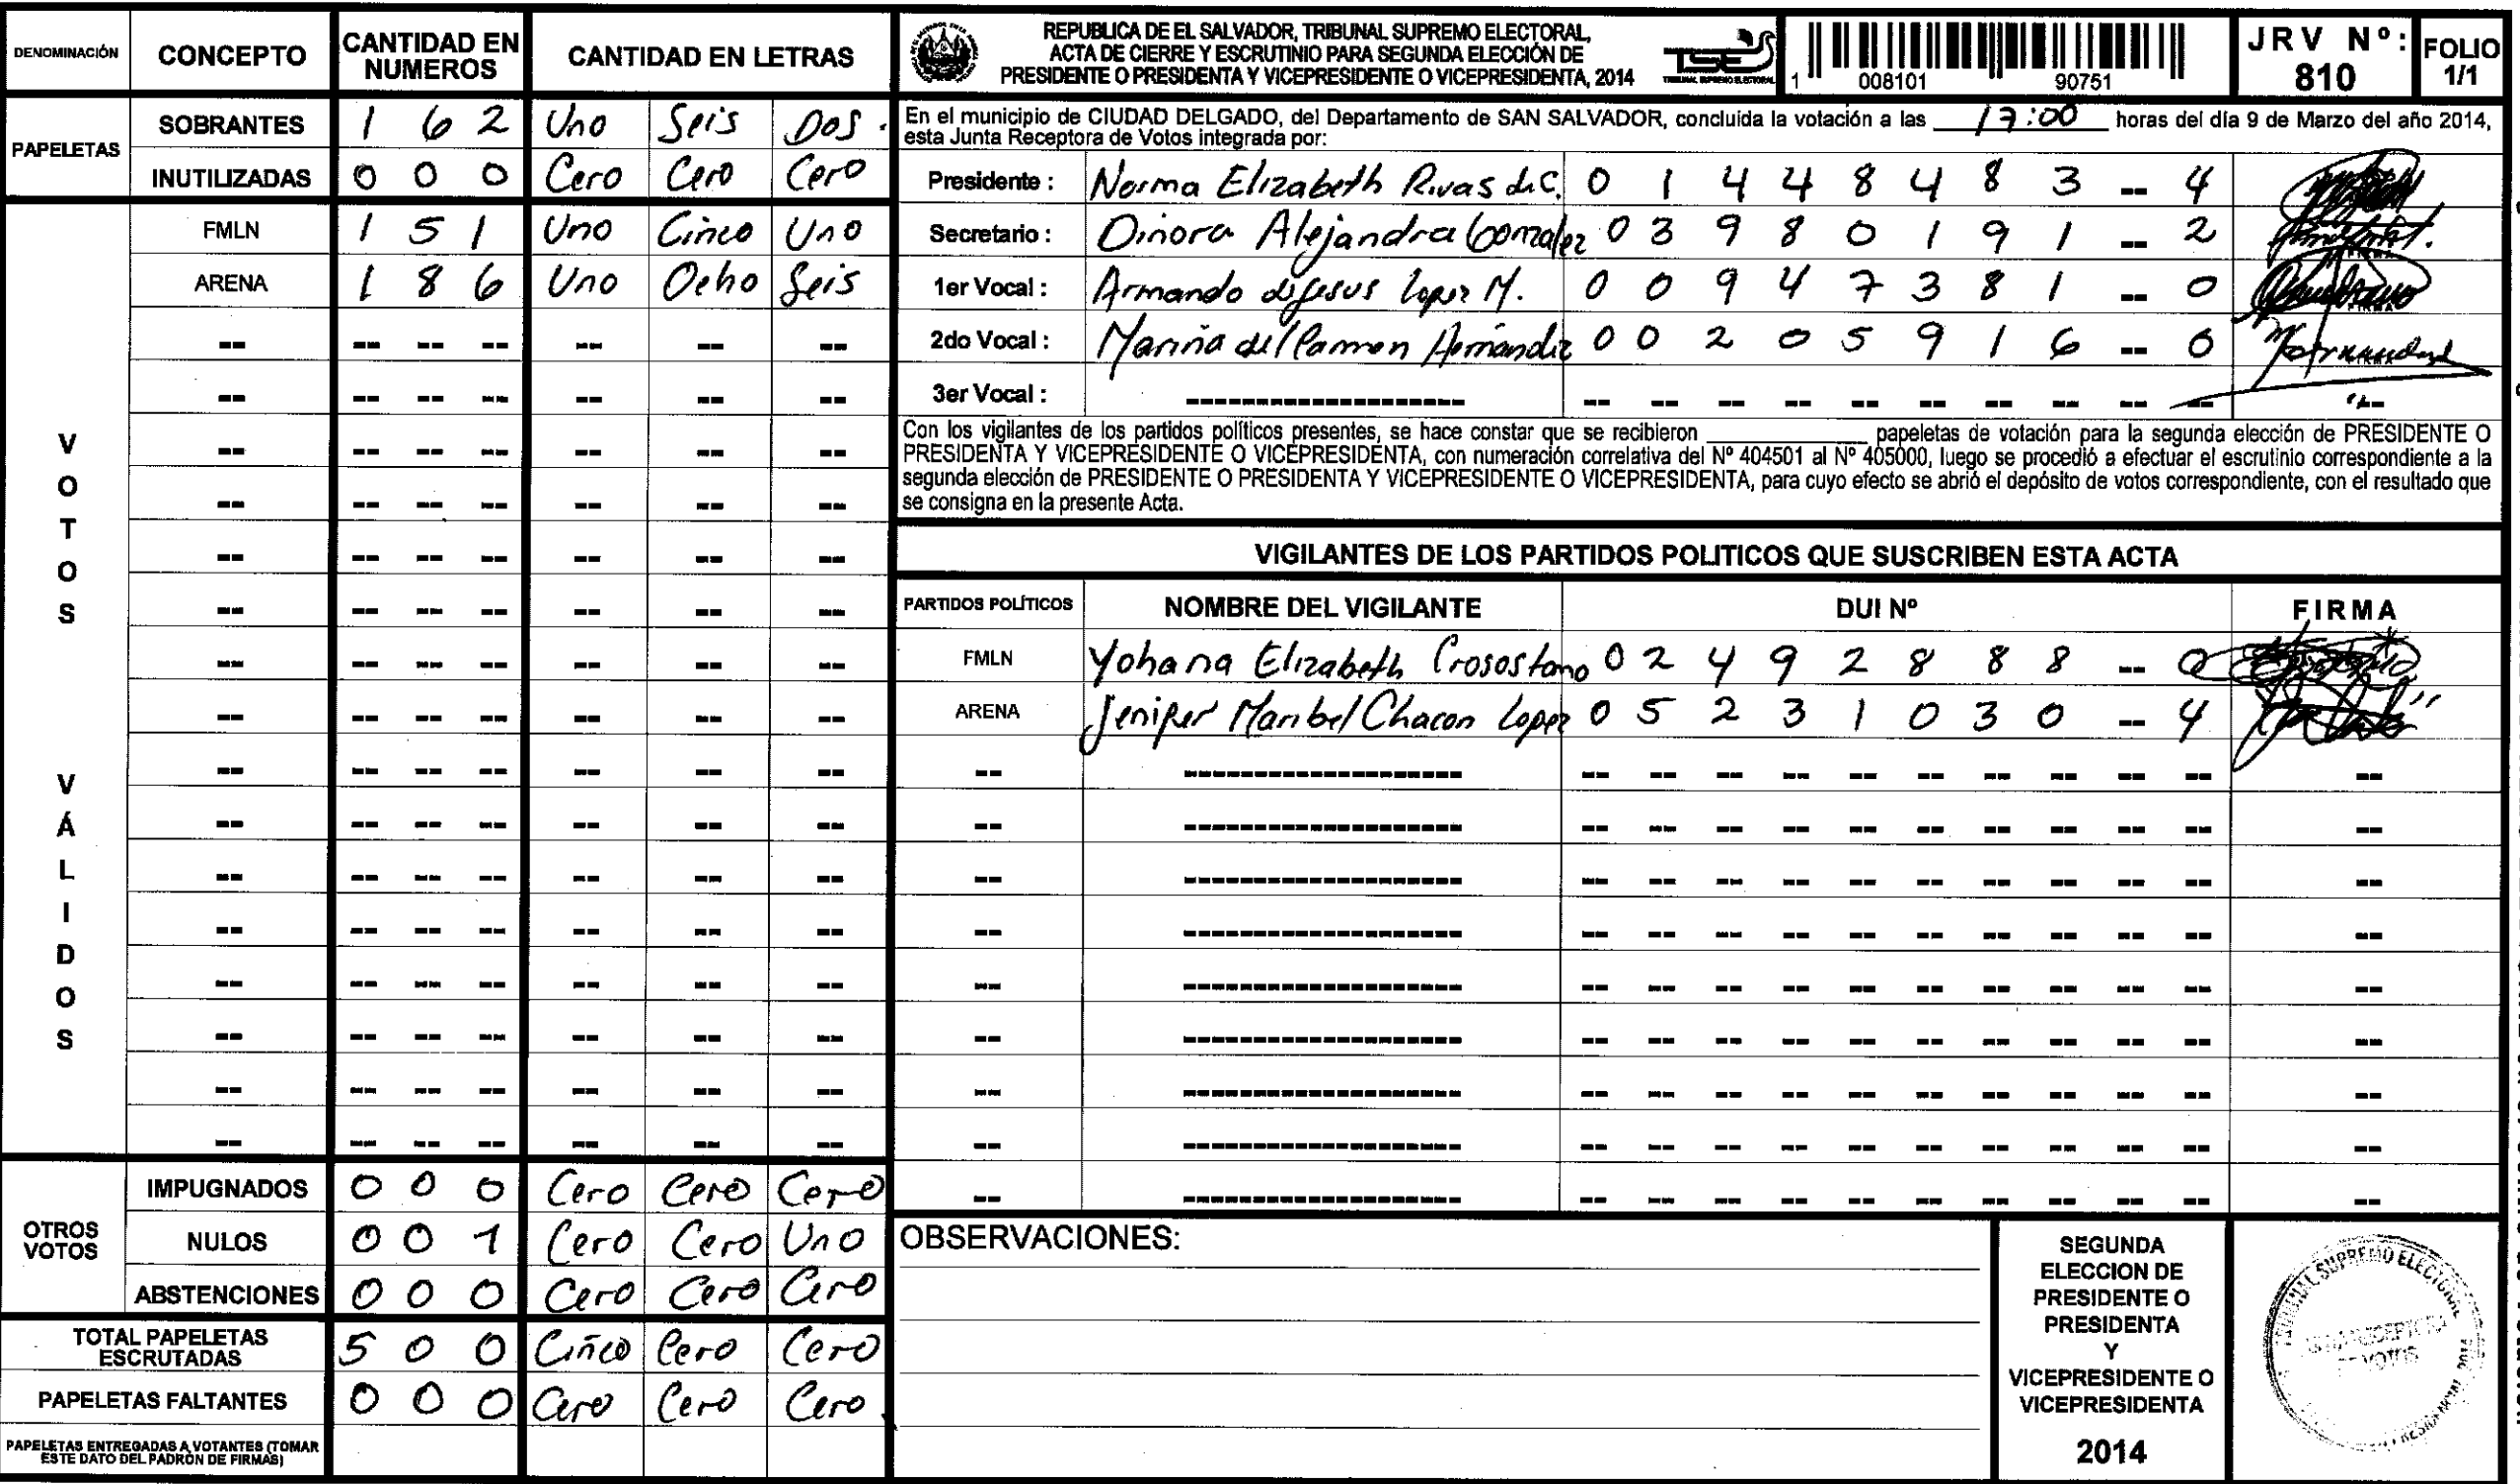 DENOMINACIÓN CONCEPTO CANTIDAD EN NUMEROS CANTIDAD EN LETRAS
PAPELETAS
SOBRANTES 1 6 2 Uno Seis Dos.
INUTILIZADAS 0 0 0 Cero Cero Cero
VOTOS VÁLIDOS
FMLN 1 5 1 Uno Cinco Uno
ARENA 1 8 6 Uno Ocho Seis
OTROS VOTOS
IMPUGNADOS 0 0 0 Cero Cero Cero
NULOS 0 0 1 Cero Cero Uno
ABSTENCIONES 0 0 0 Cero Cero Cero
TOTAL PAPELETAS ESCRUTADAS 5 0 0 Cinco Cero Cero
PAPELETAS FALTANTES 0 0 0 Cero Cero Cero.
PAPELETAS ENTREGADAS A VOTANTES (TOMAR
ESTE DATO DEL PADRÓN DE FIRMAS)
REPUBLICA DE EL SALVADOR, TRIBUNAL SUPREMO ELECTORAL,
ACTA DE CIERRE Y ESCRUTINIO PARA SEGUNDA ELECCIÓN DE
PRESIDENTE O PRESIDENTA Y VICEPRESIDENTE O VICEPRESIDENTA, 2014
TSE
TRIBUNAL SUPREMO ELECTORAL
1 008101 90751
JRV Nº: 810
FOLIO 1/1
En el municipio de CIUDAD DELGADO, del Departamento de SAN SALVADOR, concluida la votación a las 17:00 horas del día 9 de Marzo del año 2014,
esta Junta Receptora de Votos integrada por:
Presidente : Norma Elizabeth Rivas de C. 0 1 4 4 8 4 8 3 -- 4
Secretario : Dinora Alejandra Gonzalez 0 3 9 8 0 1 9 1 -- 2
1er Vocal : Armando de Jesus Lopez M. 0 0 9 4 7 3 8 1 -- 0
2do Vocal : Marina del Carmen Hernandez 0 0 2 0 5 9 1 6 -- 0
3er Vocal :
Con los vigilantes de los partidos políticos presentes, se hace constar que se recibieron ________ papeletas de votación para la segunda elección de PRESIDENTE O
PRESIDENTA Y VICEPRESIDENTE O VICEPRESIDENTA, con numeración correlativa del Nº 404501 al Nº 405000, luego se procedió a efectuar el escrutinio correspondiente a la
segunda elección de PRESIDENTE O PRESIDENTA Y VICEPRESIDENTE O VICEPRESIDENTA, para cuyo efecto se abrió el depósito de votos correspondiente, con el resultado que
se consigna en la presente Acta.
VIGILANTES DE LOS PARTIDOS POLITICOS QUE SUSCRIBEN ESTA ACTA
PARTIDOS POLÍTICOS NOMBRE DEL VIGILANTE DUI Nº FIRMA
FMLN Yohana Elizabeth 0 2 4 9 2 8 8 8 -- 0
ARENA Jenifer Maribel Chacon Lopez 0 5 2 3 1 0 3 0 -- 4
OBSERVACIONES:
SEGUNDA
ELECCION DE
PRESIDENTE O
PRESIDENTA
Y
VICEPRESIDENTE O
VICEPRESIDENTA
2014
SUPREMO ELECTORAL
DE VOTOS